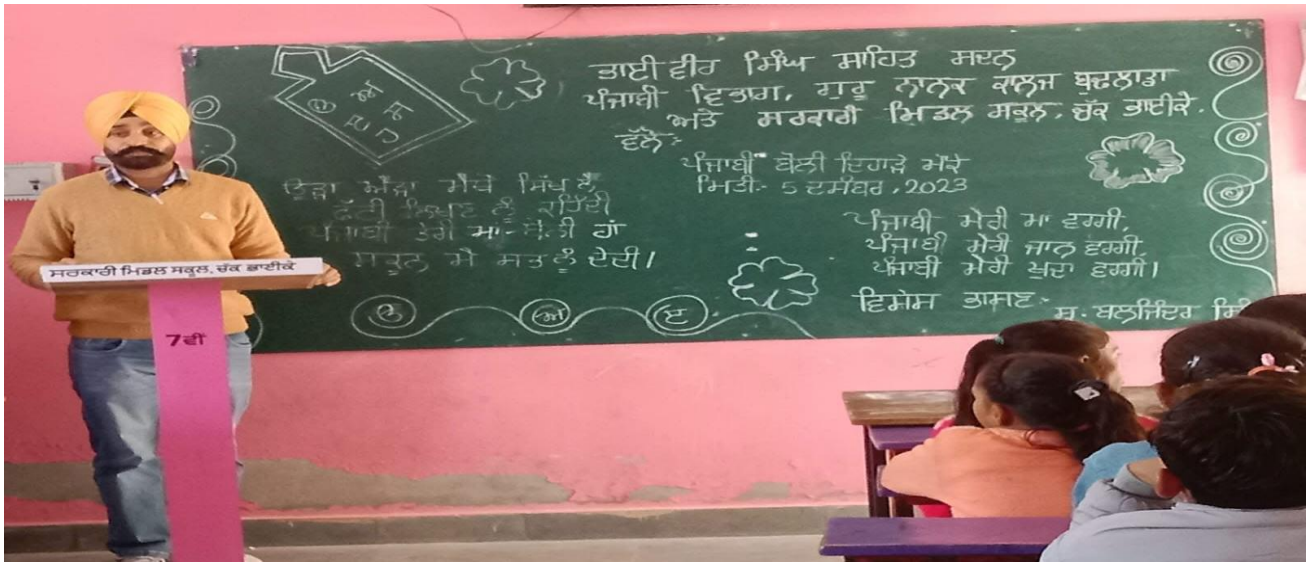 ਭਾਈ ਵੀਰ ਸਿੰਘ ਸਾਹਿਤ ਸਦਨ
ਪੰਜਾਬੀ ਵਿਭਾਗ, ਗੁਰੂ ਨਾਨਕ ਕਾਲਜ ਬੁਢਲਾਡਾ
ਅਤੇ ਸਰਕਾਰੀ ਮਿਡਲ ਸਕੂਲ, ਚੱਕ ਭਾਈਕੇ.
ਵੱਲੋਂ:-
ਪੰਜਾਬੀ ਬੋਲੀ ਦਿਹਾੜੇ ਮੌਕੇ
ਮਿਤੀ:- 5 ਦਸੰਬਰ, 2023
ੳ ਅ ੲ ਸ ਹ
ਊੜਾ ਐੜਾ ਮੈਥੋਂ ਸਿੱਖ ਲੈ
ਫੱਟੀ ਲਿਖਣ ਨੂੰ ਕਹਿੰਦੀ
ਪੰਜਾਬੀ ਤੇਰੀ ਮਾਂ-ਬੋਲੀ ਹਾਂ
ਸਕੂਨ ਮੈਂ ਸਭ ਨੂੰ ਦੇਂਦੀ।
ਪੰਜਾਬੀ ਮੇਰੀ ਮਾਂ ਵਰਗੀ,
ਪੰਜਾਬੀ ਮੇਰੀ ਜਾਨ ਵਰਗੀ,
ਪੰਜਾਬੀ ਮੇਰੀ ਖੁਦਾ ਵਰਗੀ।
ਵਿਸ਼ੇਸ਼ ਭਾਸ਼ਣ:-
ਸ. ਬਲਜਿੰਦਰ
ੳ ਅ ੲ
ਸਰਕਾਰੀ ਮਿਡਲ ਸਕੂਲ, ਚੱਕ ਭਾਈਕੇ
7ਵੀਂ